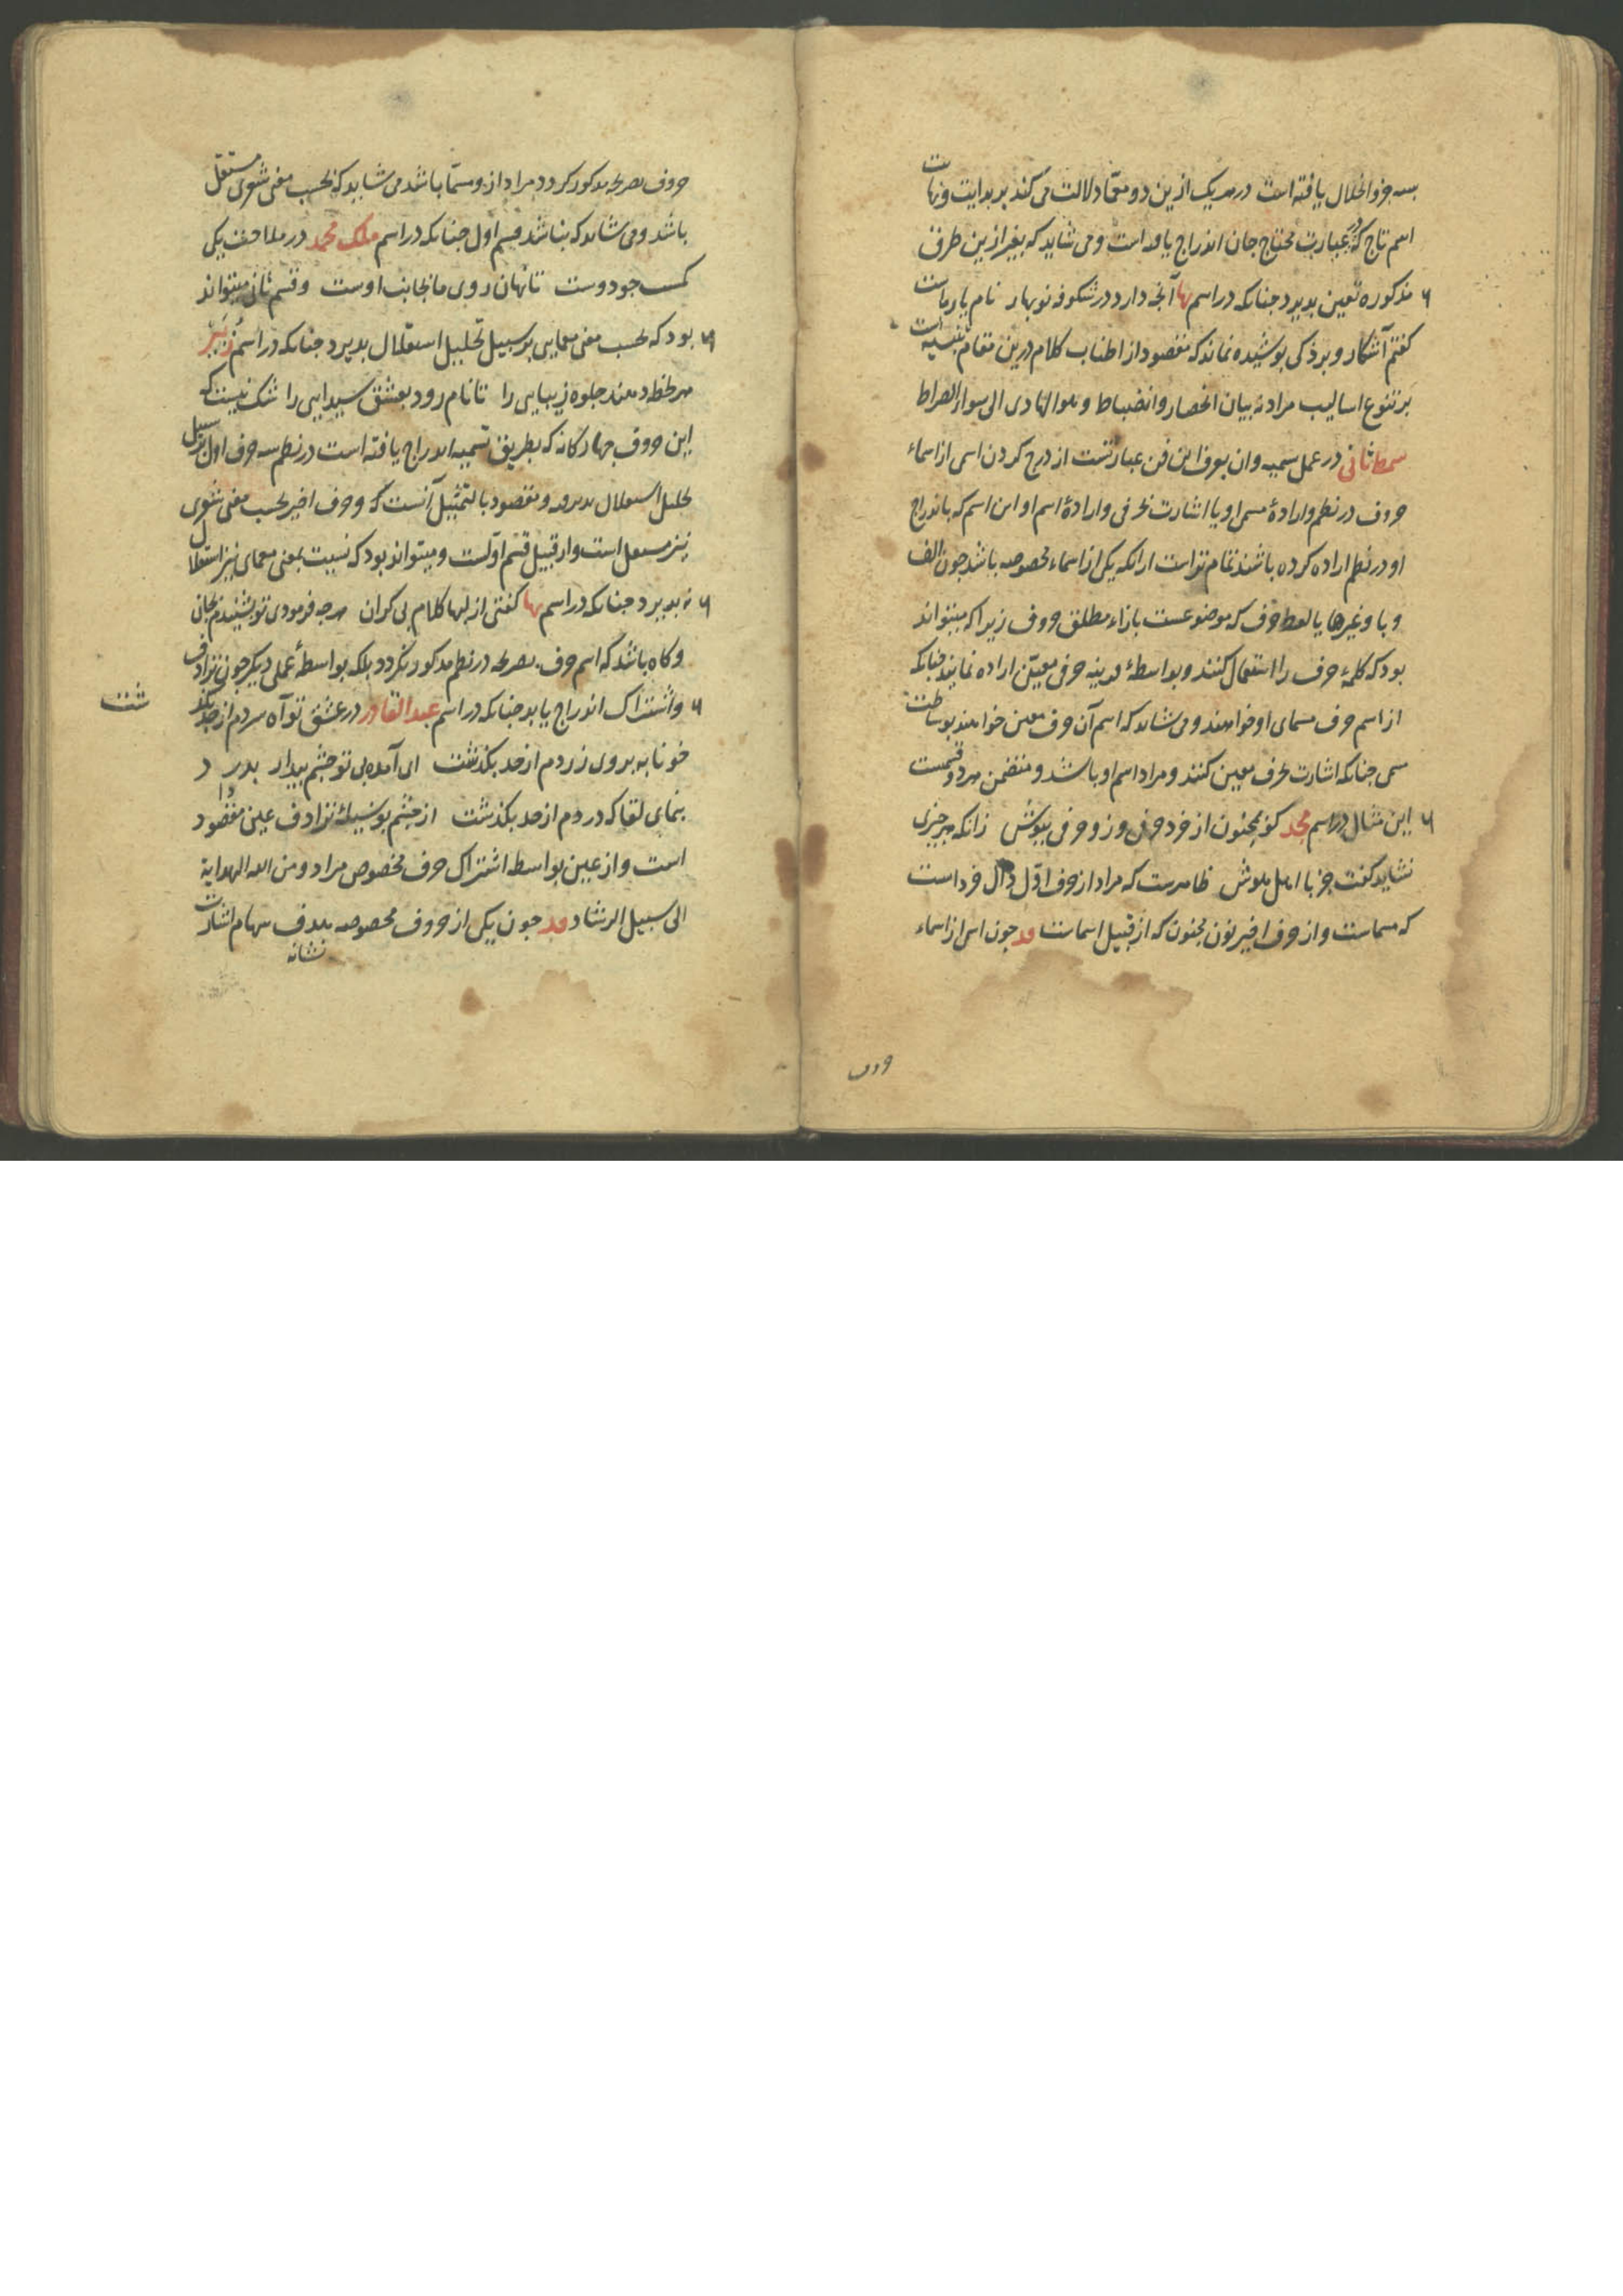 بسه جزو انحلال یافته است در هر یک ازین دو معما دلالت می کند بر بدایت و نهایت
اسم تاج که در عبارت محتاج جان اندراج یافته است و می شاید که بغیر ازین طرق
مذکوره تعین پذیرد چنانکه در اسم بها آنچه دارد در شکوفه نوبهار نام یار ماست
گفتم آشکار و بر ذکی پوشیده نماند که مقصود از اطناب کلام درین مقام تنبیه است
بر تنوع اسالیب مراد نه بیان انحصار و انضباط و هو الهادی الی سواء الصراط
سمط ثانی در عمل تسمیه و آن بعرف این فن عبارتست از درج کردن اسمی از اسماء
حروف در نظم و ارادهٔ مسمی او یا اشارت بحرفی و ارادهٔ اسم او این اسم که باندراج
او در نظم اراده کرده باشند تمام تراست ازانکه یکی از اسماء مخصوصه باشد چون الف
و با و غیرها یا لفظ حرف که موضوعست بازاء مطلق حروف زیرا که میتواند
بود که کلمهٔ حرف را استعمال کنند و بواسطهٔ قرینه حرفی معین اراده نمایند چنانکه
از اسم حرف مسمای او خواهند و می شاید که اسم آن حرف معین خواهند بوساطت
مسمی چنانکه اشارت بحرف معین کنند و مراد اسم او باشد و متضمن هر دو قسمست
این مثال در اسم مجد کو مجنون از خرد حرفی وزو حرفی بپوش زانکه هر چیزی
نشاید گفت جز با اهل هوش ظاهرست که مراد از حرف اول دال خرد است
که مسماست و از حرف اخیر نون مجنون که از قبیل اسماست مد چون اسمی از اسماء
حروف
حروف بصریح مذکور گردد مراد ازو مسما باشد می شاید که بحسب معنی شعری مستقل
باشد و می شاید که نباشد قسم اول چنانکه در اسم ملک محمد در ملاحت یکی
کست جو دوست تا نهان روی ما بجانب اوست و قسم ثانی میتواند
بود که بحسب معنی معمایی بر سبیل تحلیل استقلال پذیرد چنانکه در اسم زبیر
هر لحظه دهند جلوه زیبایی را تا نام رود بعشق شیدایی را شک نیست که
این حروف چهارگانه که بطریق تسمیه اندراج یافته است در نظم سه حرف اول بر سبیل
تحلیل استقلال پذیرفته و مقصود بالتمثیل آنست که و حرف اخیر بحسب معنی شعری
نیز مستقل است و از قبیل قسم اولست و میتواند بود که نسبت بمعنی معمای نیز استقلال
نپذیرد چنانکه در اسم بها گفتی از لبها کلام بی کران هرچه فرمودی تو بشنیدم بجان
و گاه باشد که اسم حرف بصریح در نظم مذکور نگردد بلکه بواسطهٔ عملی دیگر چون ترادف
و اشتراک اندراج یابد چنانکه در اسم عبد القادر در عشق تو آه سردم از حد بگذشت
خونابه بروی زردم از حد بگذشت ای آمده بی تو چشم بیدار بدرد
بنمای لقا که دردم از حد بگذشت از چشم بوسیلهٔ ترادف عین مقصود
است و از عین بواسطه اشتراک حرف مخصوص مراد و من الله الهدایة
الی سبیل الرشاد مد چون یکی از حروف مخصوصه هدف سهام اشارت
نشانه